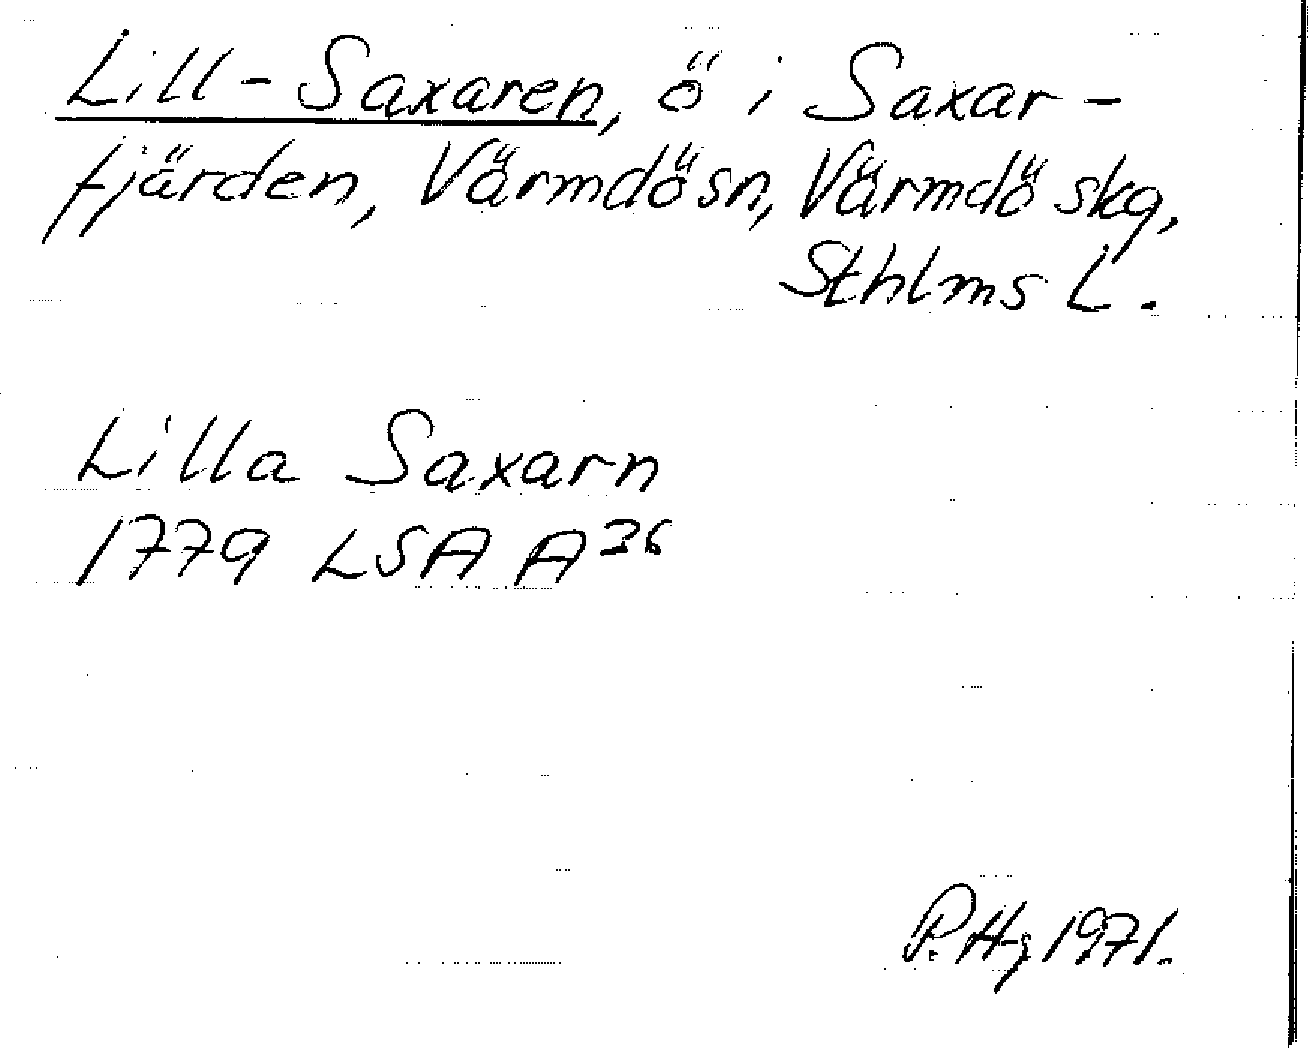 Lill-Saxaren, ö i Saxar-
fjärden, Värmdö sn, Värmdö skg,
Sthlms L.
Lilla Saxarn
1779 LSA A36
P. Hg 1971.